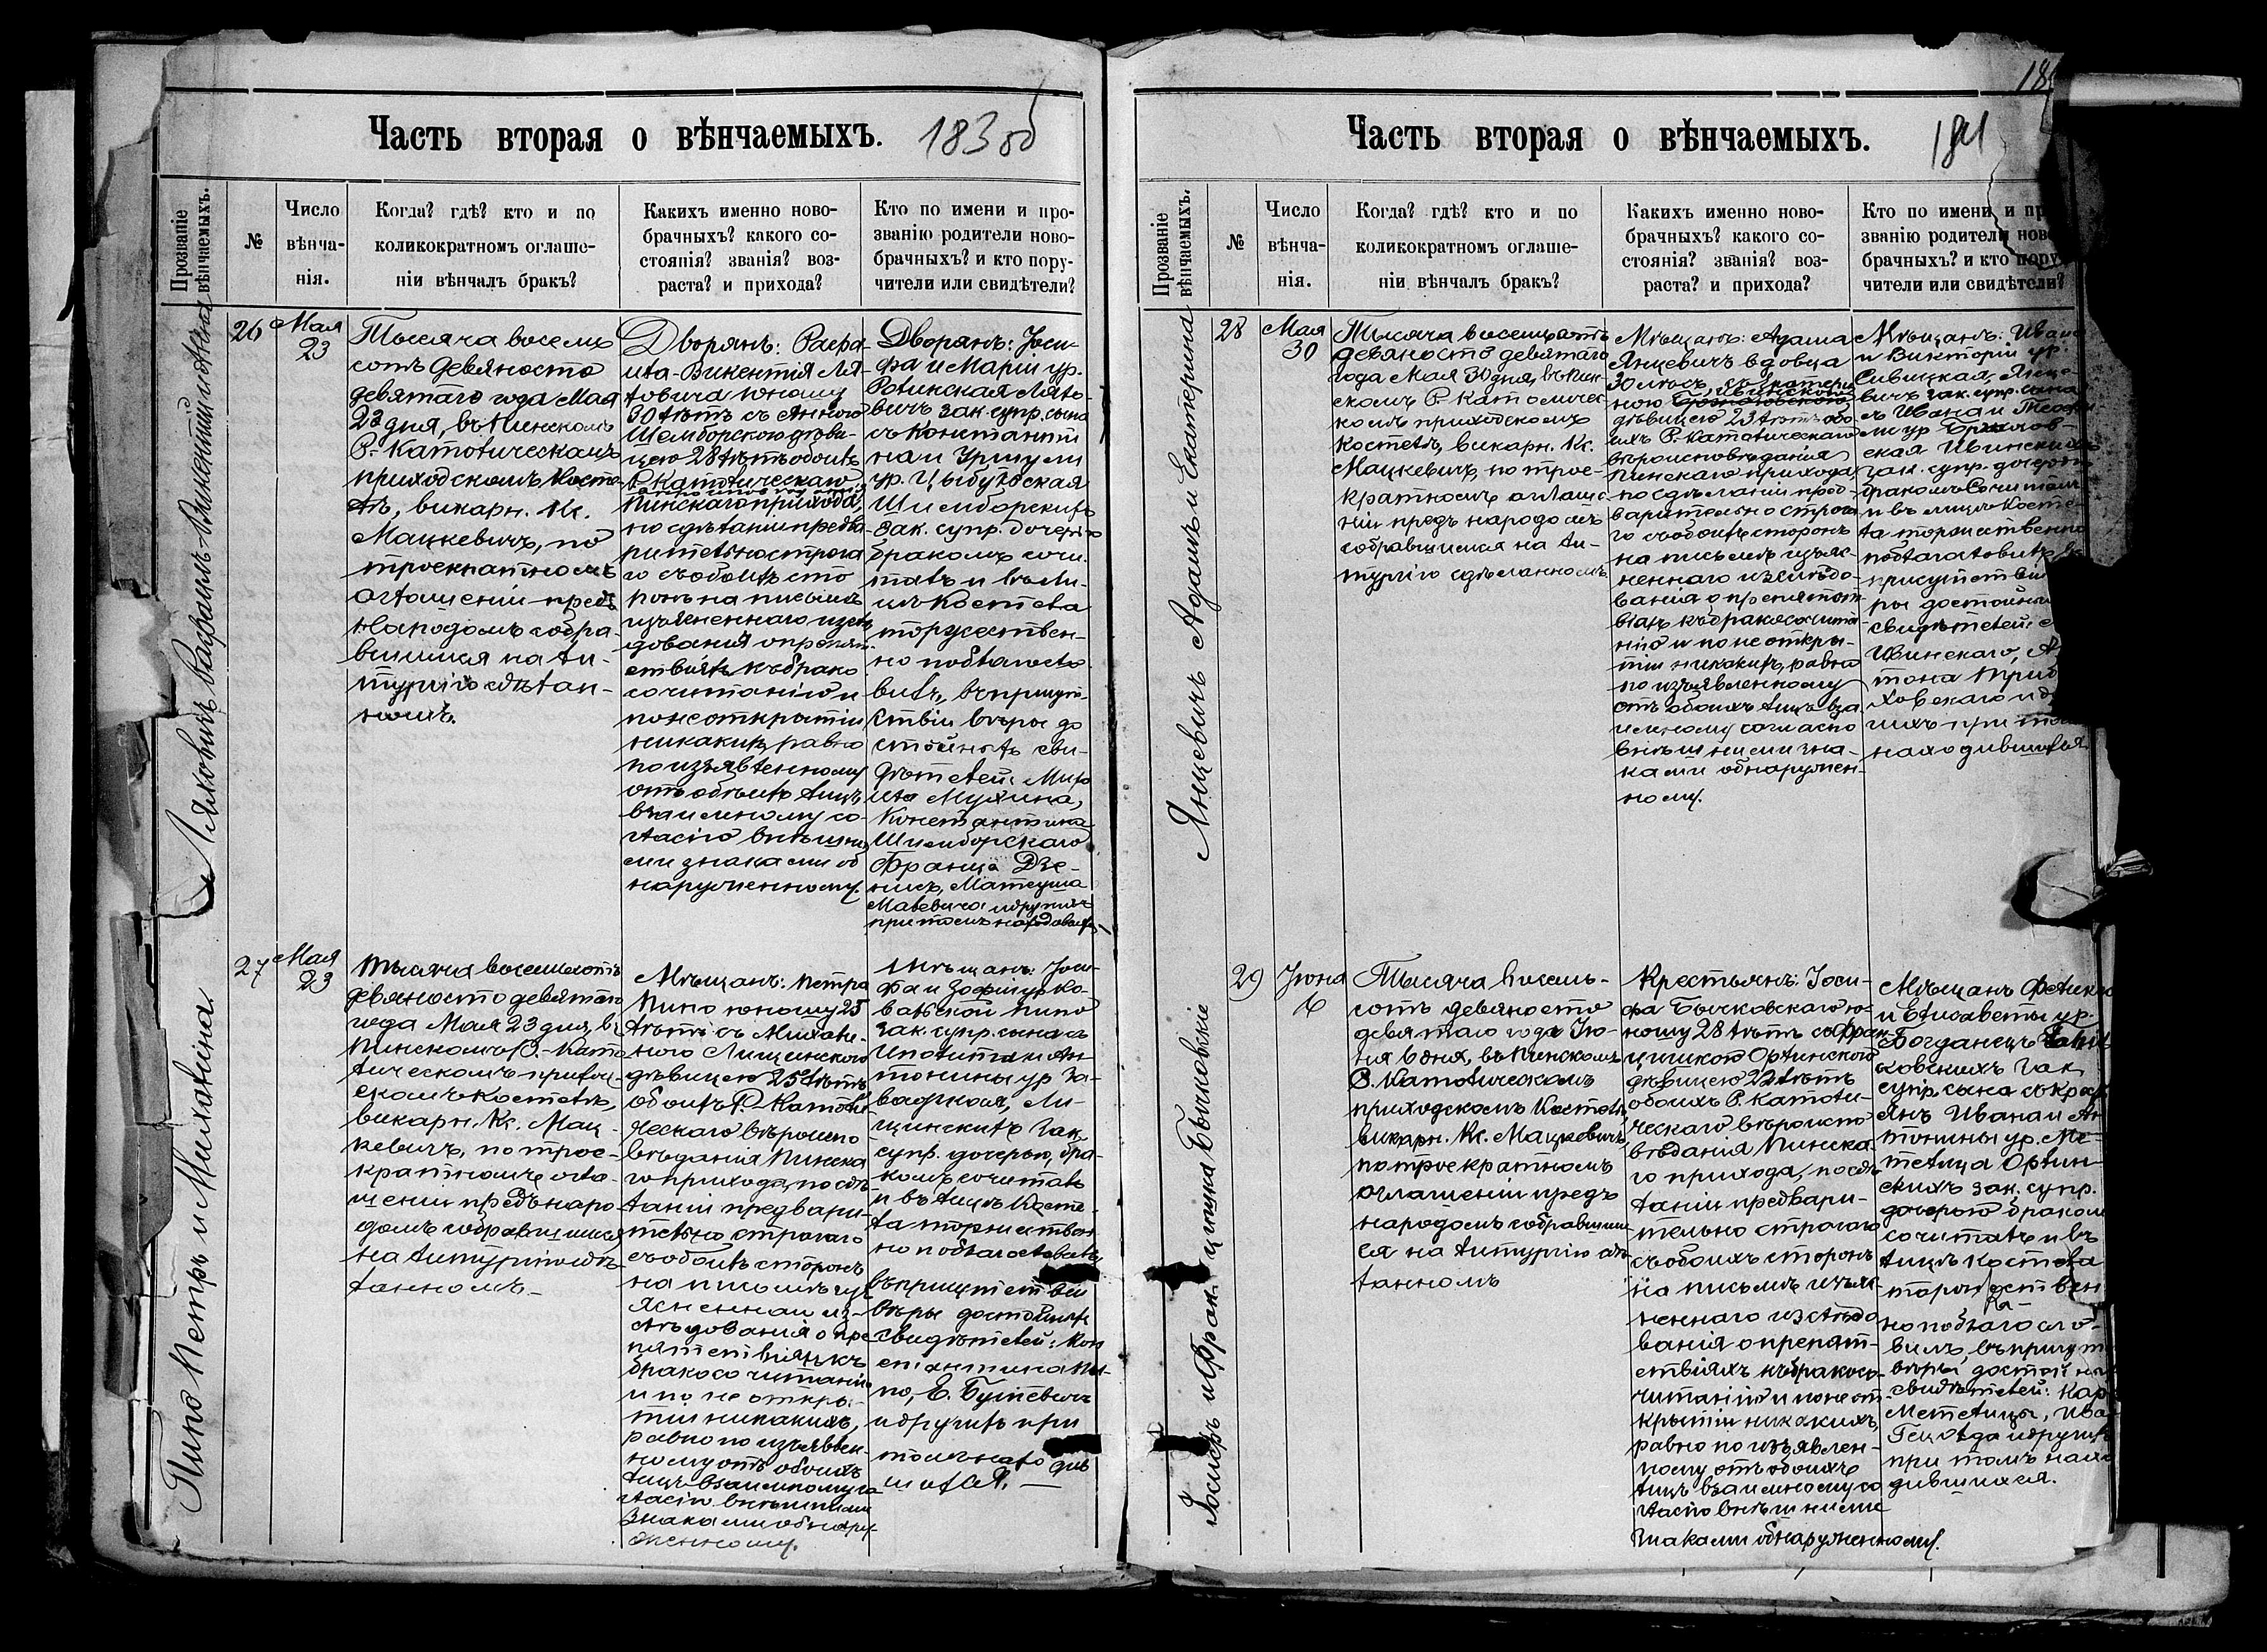 Часть вторая о вѣнчаемыхъ.
183 об
Прозваніе вѣнчаемыхъ.
№
Число вѣнча-нія.
Когда? гдѣ? кто и по
коликократномъ оглаше-
ніи вѣнчалъ бракъ?
Какихъ именно ново-
брачныхъ? какого со-
стоянія? званія? воз-
раста? и прихода?
Кто по имени и про-
званію родители ново-
брачныхъ? и кто пору-
чители или свидѣтели?
Ляховичъ Рафаилъ-Викентій и Анна
26
Мая
23
Тысяча восемь
сотъ девяносто
девятаго года Мая
23 дня, въ Пинскомъ
Р.-Католическомъ
приходскомъ Косте-
лѣ, викарн. Кс.
Мацкевичъ, по
троекратномъ
оглашеніи предъ
народомъ собра-
вшимся на Ли-
тургію сдѣлан-
номъ.
Дворянъ: Рафа-
ила-Викентія Ля-
ховича юношу
30 лѣтъ съ Анною
Шемборскою дѣви-
цею 28 лѣтъ обоихъ
Р. Католическаго
Пинскаго прихода,
по сдѣланіи предва-
рительно строга
го съ обоихъ сто
ронъ на письмѣ
изъясненнаго изслѣ
дованія о препят
ствіяхъ къ брако
сочетанію и
по не открытіи
никакихъ, равно
по изъявленному
отъ обоихъ лицъ
взаимному со-
гласію внѣшни
ми знаками об
наруженному.
Дворянъ: Іоси-
фа и Маріи ур.
Ляхо-
вичъ зак. супр. сына
съ Константи
на и Уршули
ур. Цыбульская
Шемборскихъ
зак. супр. дочерью
бракомъ соче-
талъ и въ ли-
цѣ Костела
торжествен-
но поблагосло
вилъ, въ присут-
ствіи вѣры до
стойныхъ сви-
дѣтелей:
Константина
Шемборскаго
Франца
Матеуша
и другихъ
при томъ находивш.
Пипо Петръ и Михалина
27
Мая
23
Тысяча восемьсотъ
девяносто девятаго
года Мая 23 дня, въ
Пинскомъ Р.-Като
лическомъ приход-
скомъ Костелѣ,
викарн. Кс. Мац-
кевичъ, по трое-
кратномъ огла-
шеніи предъ наро
домъ собравшимся
на Литургію сдѣ-
ланномъ.
Мѣщанъ: Петра
Пипо юношу 25
лѣтъ съ Михали-
ною Лищинскою
дѣвицею 25 лѣтъ
обоихъ Р. Католи
ческаго вѣроиспо
вѣданія Пинска
го прихода, по сдѣ
ланіи предвари-
тельно строгаго
съ обоихъ сторонъ
на письмѣ изъ
ясненнаго из-
слѣдованія о пре
пятствіяхъ къ
бракосочетанію
и по не откры-
тіи никакихъ,
равно по изъявлен-
ному отъ обоихъ
лицъ взаимному со
гласію внѣшними
знаками обнару-
женному.
Мѣщанъ: Іоси-
фа и Зофіи ур. Ко-
вальской Пипо
зак. супр. сына съ
Ипполита и Ан
тонины ур. За-
вадской, Ли-
щинскихъ зак.
супр. дочерью, бра-
комъ сочеталъ
и въ лицѣ Косте-
ла торжествен
но поблагословилъ
въ присутствіи
вѣры достойныхъ
свидѣтелей: Кон
стантина Пи-
по, Е.
и другихъ при
томъ находив
шихся.
Часть вторая о вѣнчаемыхъ.
184
Прозваніе вѣнчаемыхъ.
№
Число вѣнча-нія.
Когда? гдѣ? кто и по
коликократномъ оглаше-
ніи вѣнчалъ бракъ?
Какихъ именно ново-
брачныхъ? какого со-
стоянія? званія? воз-
раста? и прихода?
Кто по имени и пр
званію родители нов
брачныхъ? и кто пору
чители или свидѣтели?
Янцевичъ Адамъ и Екатерина
28
Мая
30
Тысяча восемьсотъ
девяносто девятаго
года Мая 30 дня, въ Пин-
скомъ Р. Католичес-
комъ приходскомъ
Костелѣ, викарн. Кс.
Мацкевичъ, по трое-
кратномъ оглаше-
ніи предъ народомъ
собравшимся на Ли-
тургію сдѣланномъ
Мѣщанъ: Адама
Янцевичъ вдовца
30 лѣтъ, съ Катери
ною Ивинскою
дѣвицею 23 лѣтъ обо
ихъ Р. Католическаго
вѣроисповѣданія
Пинскаго прихода,
по сдѣланіи пред-
варительно строга
го съ обоихъ сторонъ
на письмѣ изъяс-
неннаго изслѣдо-
ванія о препятст
віяхъ къ бракосочета-
нію и по не откры-
тіи никакихъ, равно
по изъявленному
отъ обоихъ лицъ вза
имному согласію
внѣшними зна-
ками обнаружен-
ному.
Мѣщанъ: Ивана
и Викторіи ур.
Сивицкая, Янце-
вичъ зак. супр. сына
съ Ивана и
ская Ивинскихъ
зак. супр. дочерью
бракомъ сочеталъ
и въ лицѣ Косте-
ла торжественно
поблагословилъ, въ
присутствіи
ры достойныхъ
свидѣтелей:
Ивинскаго, А
тона
ховскаго и д
гихъ при томъ
находившихся
Іосифъ и Францишка Бычковскіе
29
Іюня
6
Тысяча восемь-
сотъ девяносто
девятаго года Ію-
ня 6 дня, въ Пинскомъ
Р. Католическомъ
приходскомъ Костелѣ,
викарн. Кс. Мацкевичъ,
по троекратномъ
оглашеніи предъ
народомъ собравшим
ся на Литургію сдѣ
ланномъ
Крестьянъ: Іоси-
фа Бычковскаго ю-
ношу 28 лѣтъ съ Фран
цишкою Орлинскою
дѣвицею 22 лѣтъ
обоихъ Р. Католи-
ческаго вѣроиспо
вѣданія Пинска-
го прихода, по сдѣ
ланіи предвари-
тельно строгаго
съ обоихъ сторонъ
на письмѣ изъяс-
неннаго изслѣдо
ванія о препят-
ствіяхъ къ бракосо-
четанію и по не от
крытіи никакихъ,
равно по изъявлен-
ному отъ обоихъ
лицъ взаимному со
гласію внѣшними
знаками обнаруженному.
Мѣщанъ Феликса
и Елисаветы ур.
Богданецъ
ковскихъ зак.
супр. сына съ крест
янъ Ивана и Ан
тонины ур. Ме-
телица Орлин-
скихъ зак. супр.
дочерью бракомъ
сочеталъ и въ
лицѣ Костела
торжествен
но поблагосло-
вилъ, въ присут
вѣры достойны
свидѣтелей: Кар
Метелицы, Ива
и другихъ
при томъ нахо
дившихся.